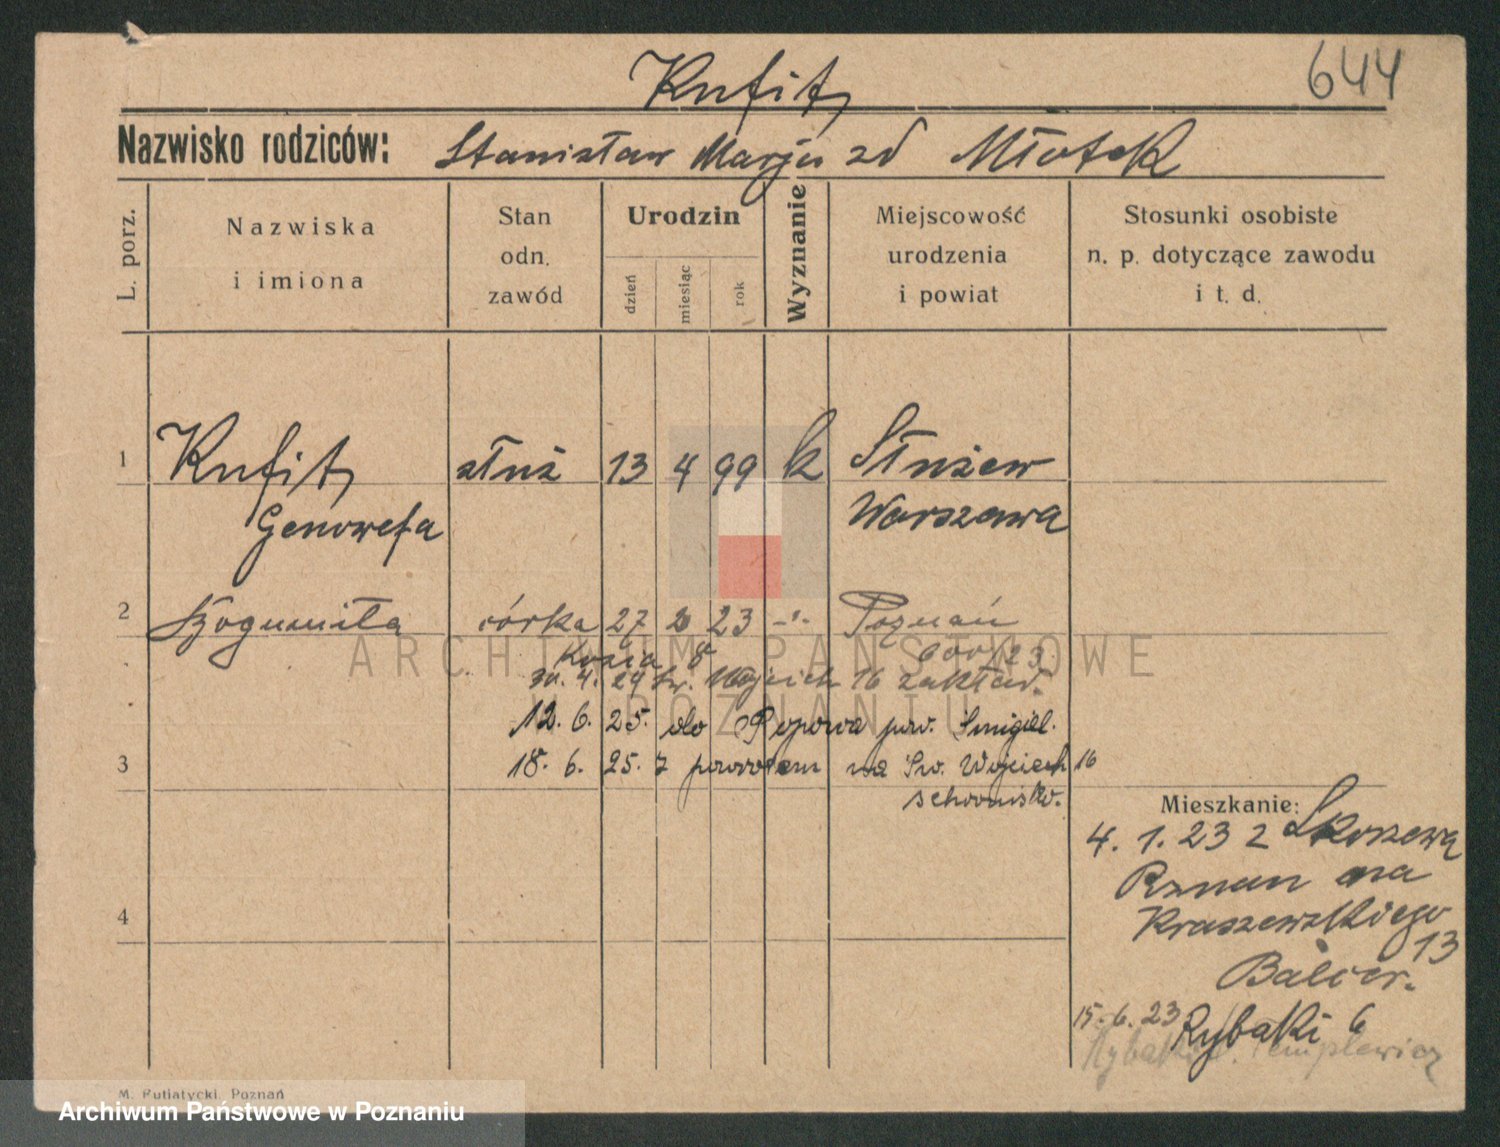 644
Kufit
Nazwisko rodziców: Stanisław Marja zd Młotek
L. porz.
Nazwiska
i imiona
Stan
odn.
zawód
Urodzin
dzień
miesiąc
rok
Wyznanie
Miejscowość
urodzenia
i powiat
Stosunki osobiste
n. p. dotyczące zawodu
i t. d.
1 Kufit służ 13 4 99 k Służew
Genowefa Warszawa
2 Bogumiła córka 27 2 23 -"- Poznań
Kozia 8 600/23
30. 4. 24 Św. Wojciech 16 zakład.
12. 6. 25. do Popowa pow. Śmigiel.
3 18. 6. 25. z powrotem na Św. Wojciech 16
schronisko.
Mieszkanie:
4. 1. 23 z
na
Kraszewskiego
13
15. 6. 23 Rybaki 6
Rybaki
4
M. Putiatycki, Poznań
ARCHIWUM PAŃSTWOWE
W POZNANIU
Archiwum Państwowe w Poznaniu